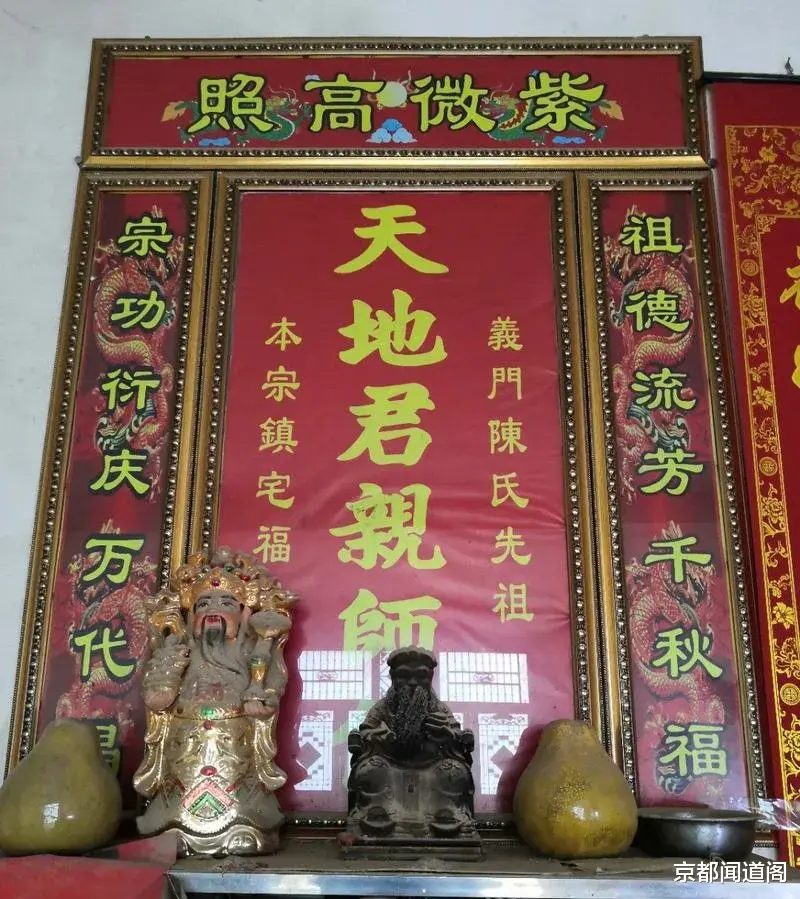 紫微高照
祖德流芳千秋福
義門陳氏先祖
天地君親師
本宗鎮宅福
宗功衍庆万代昌
京都闻道阁